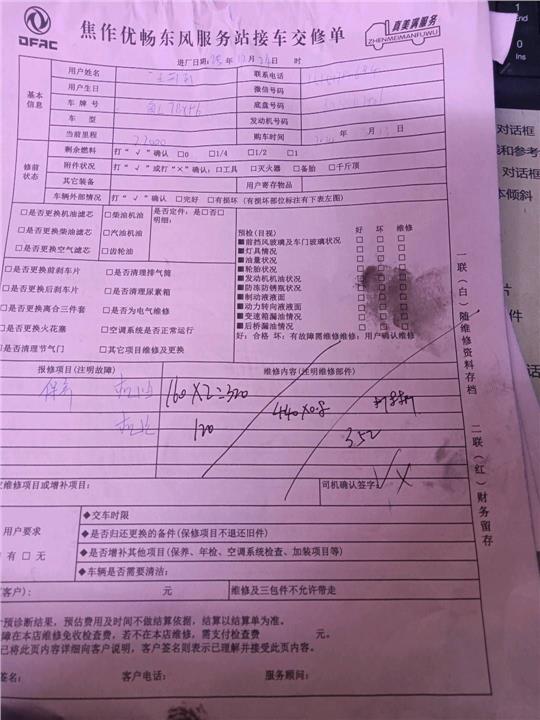 DFAC
焦作优畅东风服务站接车交修单
真美满服务
ZHENMEIMANFUWU
进厂日期: 年 月 日 时
基本信息
用户姓名 联系电话
用户生日 微信号码
车牌号 底盘号码
车型 发动机号码
当前里程 22000 购车时间 年 月 日
修前状态
剩余燃料 打“√”确认 □0 □1/4 □1/2 □1
附件状况 打“√”或打“×”确认：□工具 □灭火器 □备胎 □千斤顶
其它装备 用户寄存物品
车辆外部情况 打“√”确认 □完好 □有损坏 (有损坏部位标注有下表左图)
□是否更换机油滤芯 □柴油机油 是否定件：是□否□
明细：
□是否更换柴油滤芯 □汽油机油
□是否更换空气滤芯 □齿轮油
□是否更换前刹车片 □是否清理排气筒
□是否更换后刹车片 □是否清理尿素箱
□是否更换离合三件套 □是否为电气维修
□是否更换火花塞 □空调系统是否正常运行
□是否清理节气门 □其它项目维修及更换
预检(目视) 好 坏 维修
■前挡风玻璃及车门玻璃状况 □ □ □
■灯具情况 □ □ □
■油量状况 □ □ □
■轮胎状况 □ □ □
■发动机机油状况 □ □ □
■防冻防锈瓶状况 □ □ □
■制动液液面 □ □ □
■动力转向液液面 □ □ □
■变速箱漏油情况 □ □ □
■后桥漏油情况 □ □ □
好：合格 坏：有故障需维修维修：用户确认维修
报修项目(注明故障) 维修内容(注明维修部件)
保养 机油 160×2=320 440×0.8
机滤 120 352
维修项目或增补项目: 司机确认签字:
用户要求
有 □ 无
◆交车时限
◆是否归还更换的备件(保修项目不退还旧件)
◆是否增补其他项目(保养、年检、空调系统检查、加装项目等)
◆车辆是否需要清洁:
客户): 元 维修及三包件不允许带走
预诊断结果，预估费用及时间不做结算依据，结算以结算单为准。
障在本店维修免收检查费，若不在本店维修，需支付检查费 元。
已将此页内容详细向客户说明，客户签名则表示已理解并接受此页内容。
签名: 客户电话: 服务顾问:
一联(白)随维修资料存档
二联(红)财务留存
Ins
对话框
和参考
对话框
本倾斜
片
件